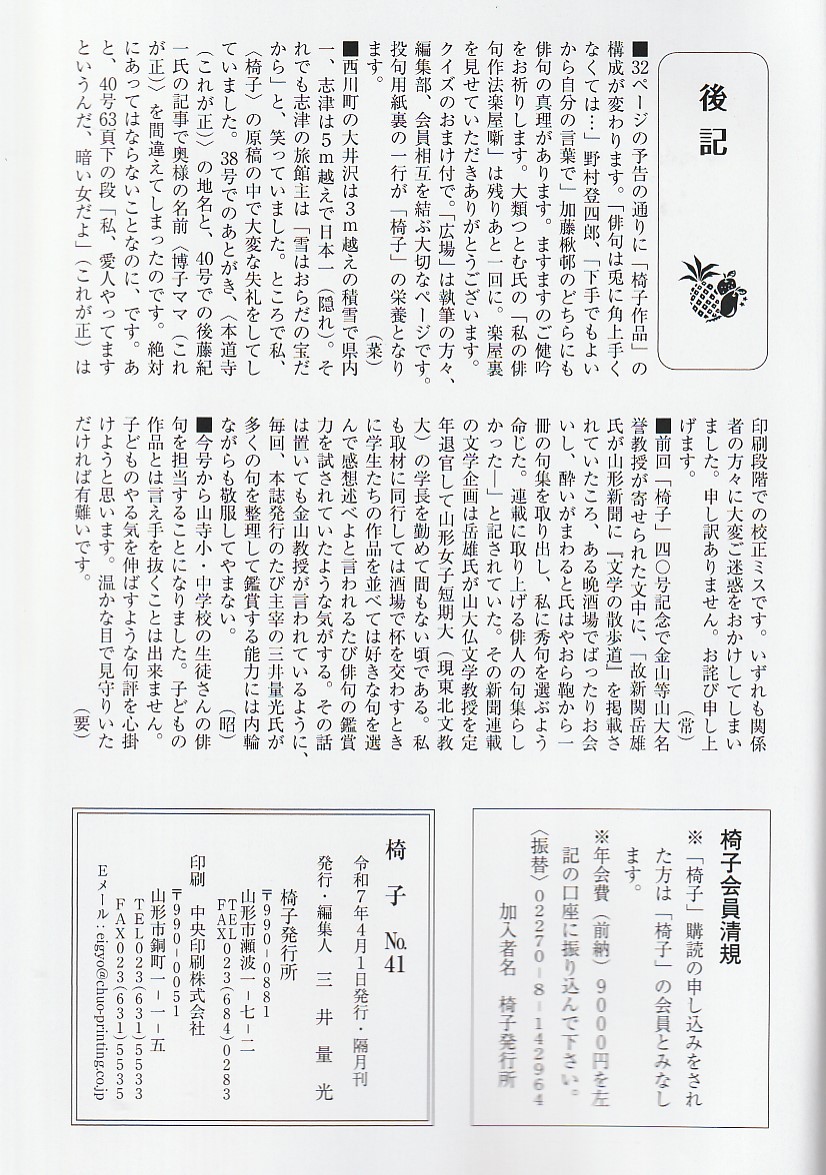 後記
■32ページの予告の通りに「椅子作品」の
構成が変わります。「俳句は兎に角上手く
なくては…」野村登四郎、「下手でもよい
から自分の言葉で」加藤楸邨のどちらにも
俳句の真理があります。ますますのご健吟
をお祈りします。大類つとむ氏の「私の俳
句作法楽屋噺」は残りあと一回に。楽屋裏
を見せていただきありがとうございます。
クイズのおまけ付で。「広場」は執筆の方々、
編集部、会員相互を結ぶ大切なページです。
投句用紙裏の一行が「椅子」の栄養となり
ます。　（菜）
■西川町の大井沢は3m越えの積雪で県内
一、志津は5m越えで日本一（隠れ）。そ
れでも志津の旅館主は「雪はおらだの宝だ
から」と、笑っていました。ところで私、
〈椅子〉の原稿の中で大変な失礼をしてし
ていました。38号でのあとがき、〈本道寺
（これが正）〉の地名と、40号での後藤紀
一氏の記事で奥様の名前〈博子ママ（これ
が正）〉を間違えてしまったのです。絶対
にあってはならないことなのに、です。あ
と、40号63頁下の段「私、愛人やってます
というんだ、暗い女だよ」（これが正）は
印刷段階での校正ミスです。いずれも関係
者の方々に大変ご迷惑をおかけしてしまい
ました。申し訳ありません。お詫び申し上
げます。　（常）
■前回「椅子」四〇号記念で金山等山大名
誉教授が寄せられた文中に、「故新関岳雄
氏が山形新聞に『文学の散歩道』を掲載さ
れていたころ、ある晩酒場でばったりお会
いし、酔いがまわると氏はやおら鞄から一
冊の句集を取り出し、私に秀句を選ぶよう
命じた。連載に取り上げる俳人の句集らし
かった―」と記されていた。その新聞連載
の文学企画は岳雄氏が山大仏文学教授を定
年退官して山形女子短期大（現東北文教
大）の学長を勤めて間もない頃である。私
も取材に同行しては酒場で杯を交わすとき
に学生たちの作品を並べては好きな句を選
んで感想述べよと言われるたび俳句の鑑賞
力を試されていたような気がする。その話
は置いても金山教授が言われているように、
毎回、本誌発行のたび主宰の三井量光氏が
多くの句を整理して鑑賞する能力には内輪
ながらも敬服してやまない。　（昭）
■今号から山寺小・中学校の生徒さんの俳
句を担当することになりました。子どもの
作品とは言え手を抜くことは出来ません。
子どものやる気を伸ばすような句評を心掛
けようと思います。温かな目で見守りいた
だければ有難いです。　（要）
椅子会員清規
※「椅子」購読の申し込みをされ
た方は「椅子」の会員とみなし
ます。
※年会費（前納）9000円を左
記の口座に振り込んで下さい。
〈振替〉02270-8-142964
加入者名　椅子発行所
椅子　No.41
令和7年4月1日発行・隔月刊
発行・編集人　三井量光
椅子発行所
〒990-0881
山形市瀬波一-七-二
TEL
FAX 023(684)0283
印刷　中央印刷株式会社
〒990-0051
山形市銅町一-一-五
TEL023(631)5533
FAX023(631)5535
Eメール：eigyo@chuo-printing.co.jp